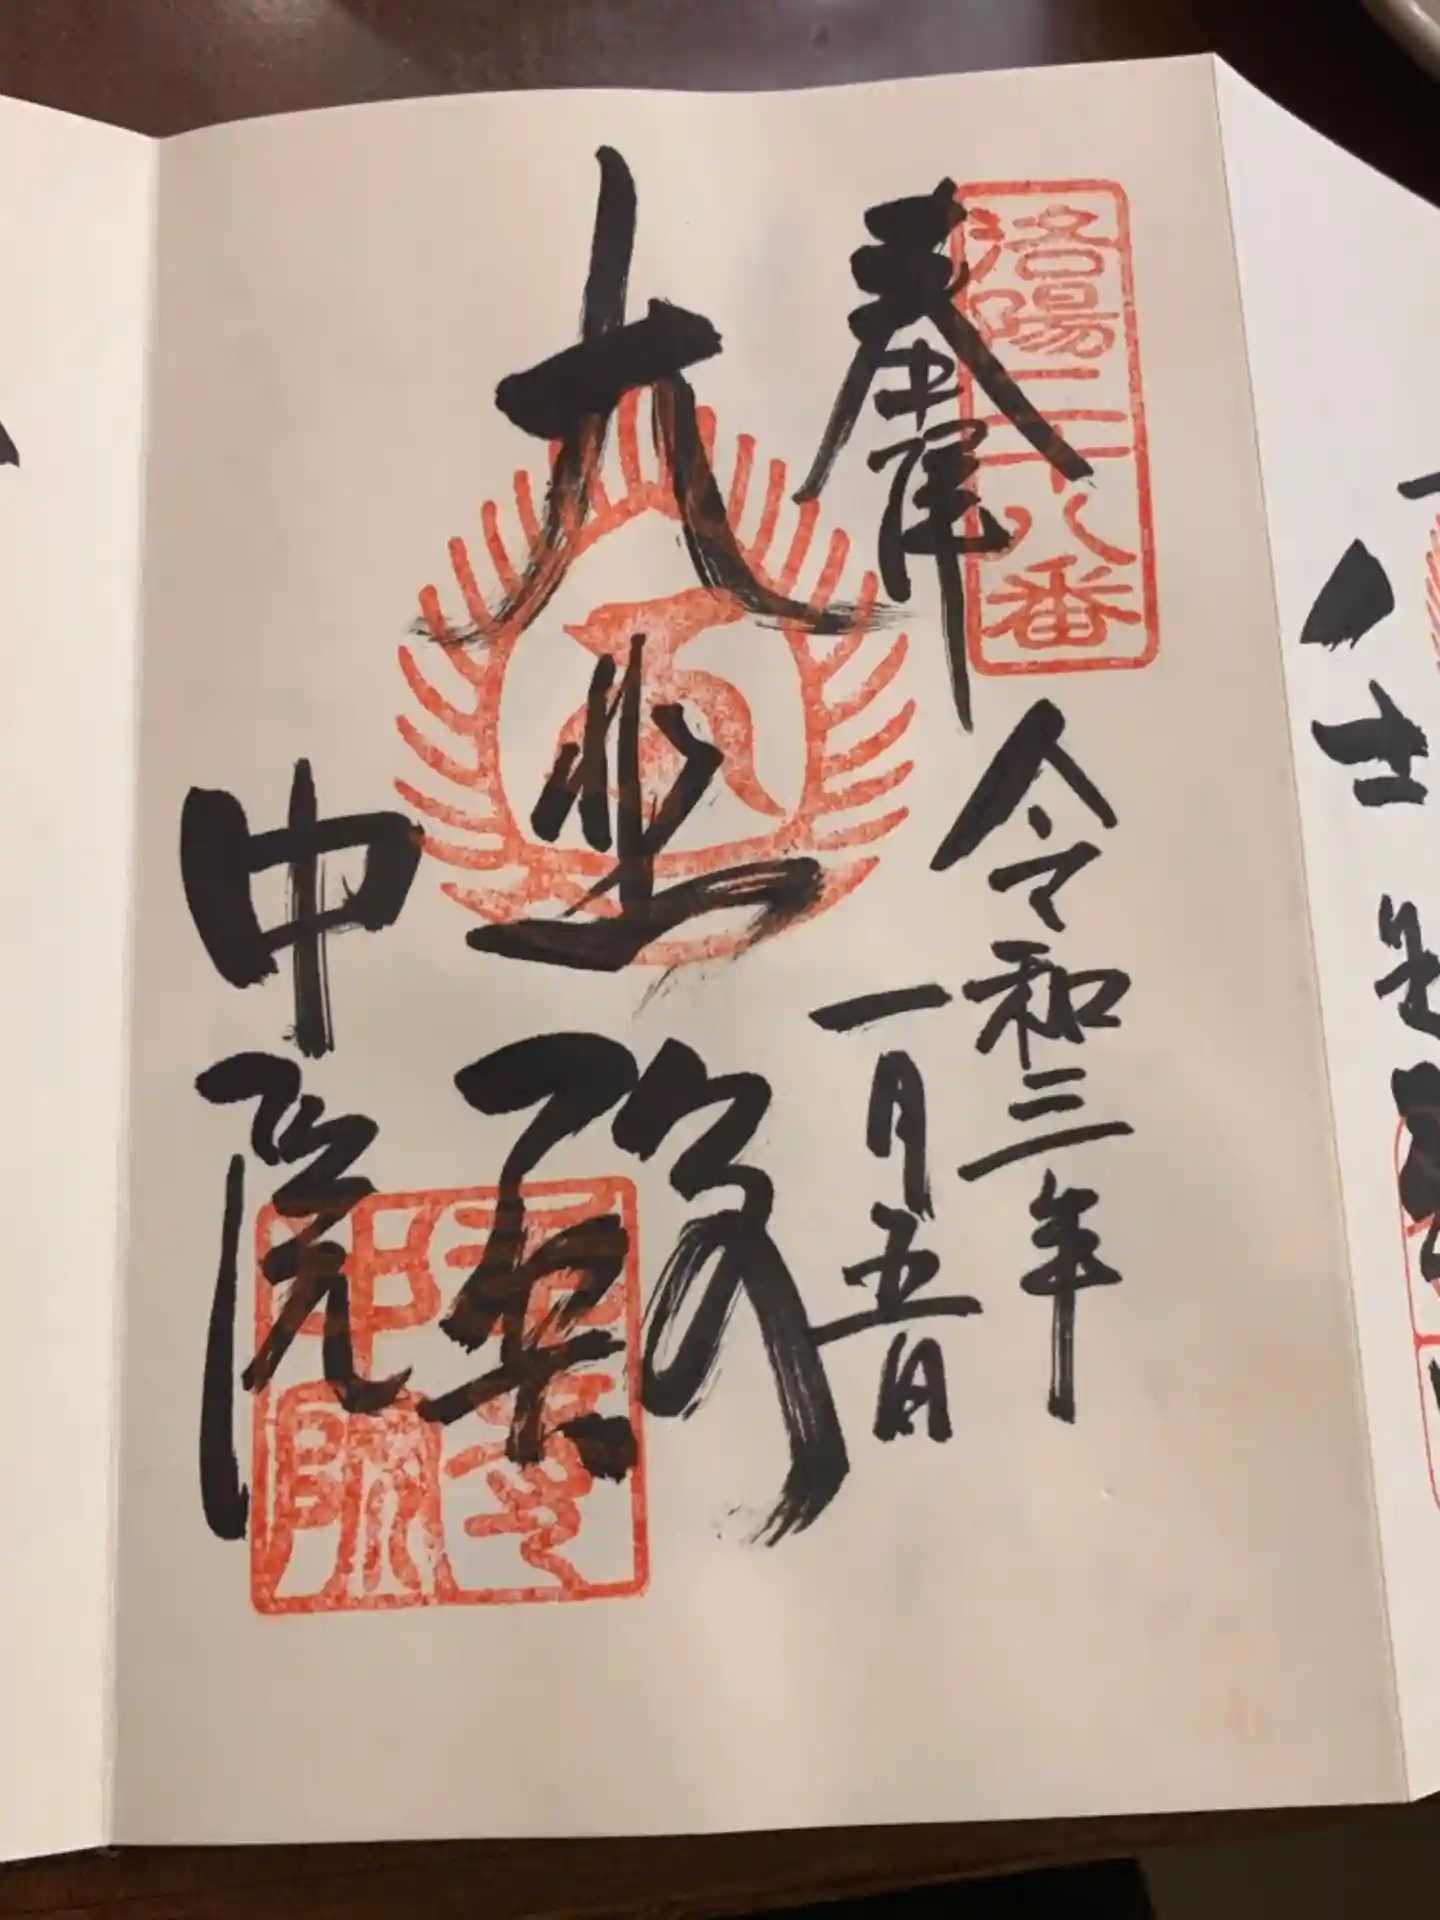 洛陽二十八番
奉拝
令和三年
一月五日
大悲殿
中院